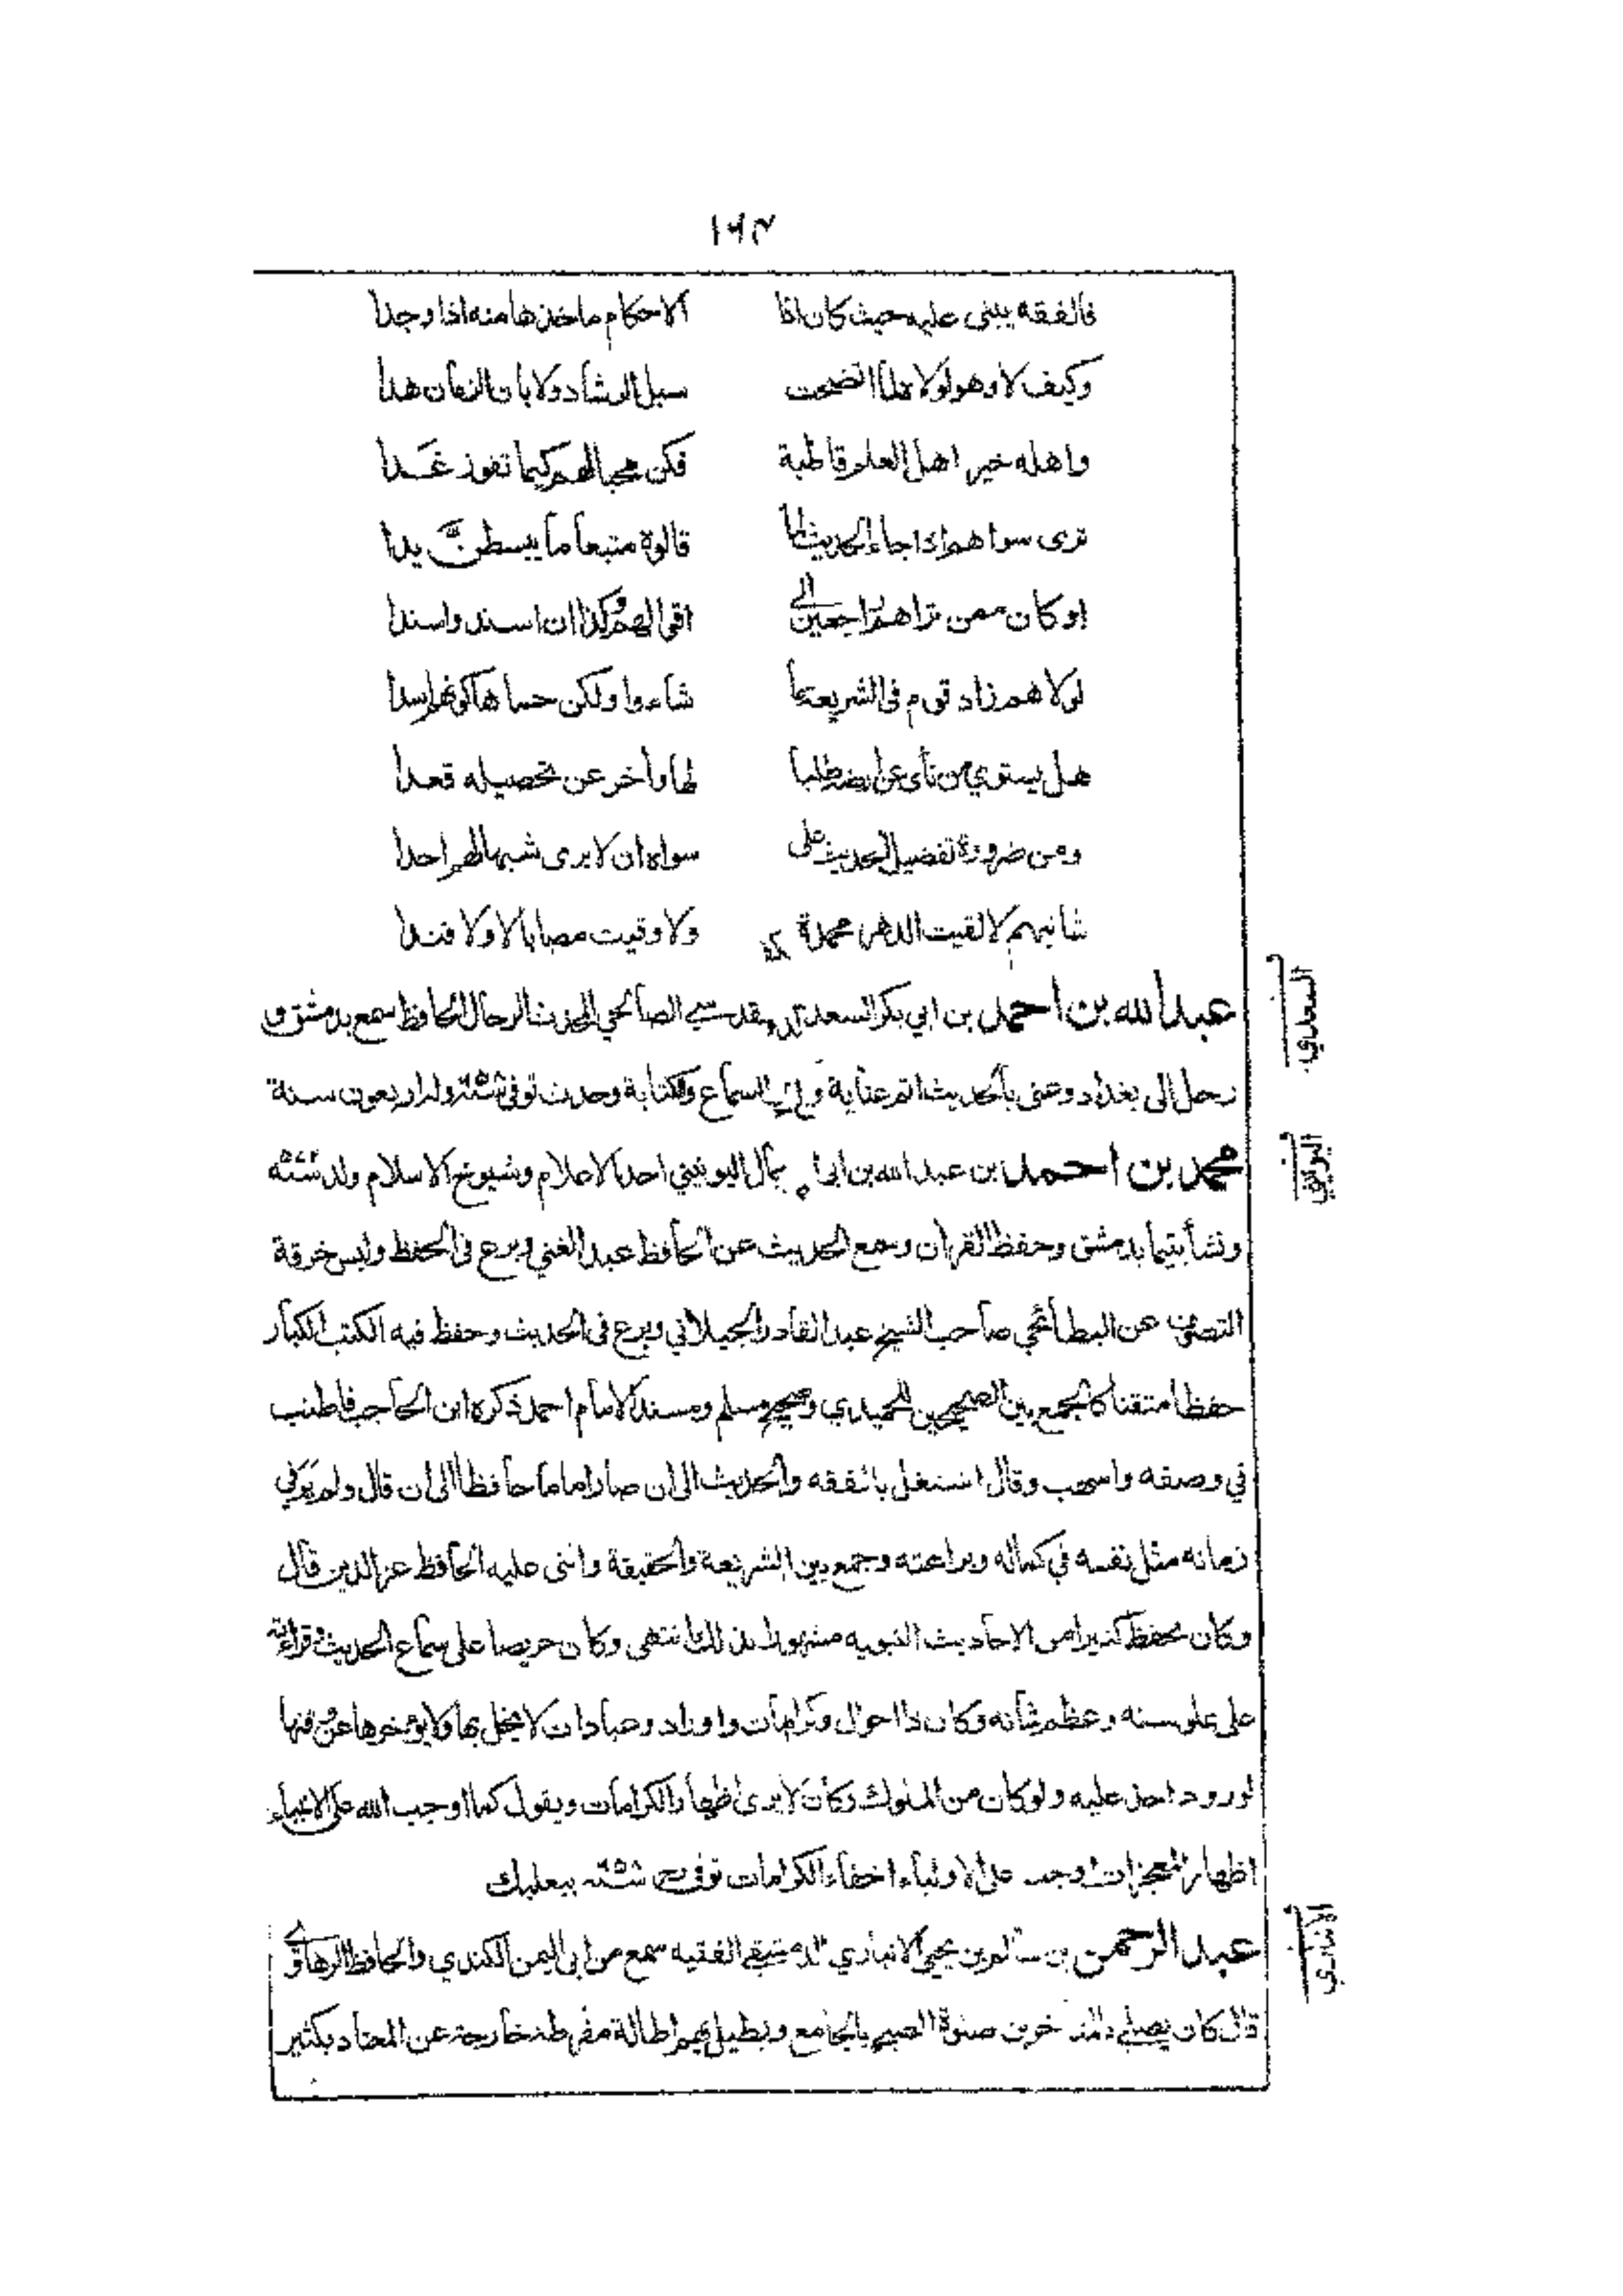 ١٦٣
فالفقه يبنى عليه حيث كان اذا الاحكام ماخذها منه اذا وجدا
وكيف لا وهو لولا ما اتضحت سبل الرشاد ولا بان الزمان هدا
واهله خير اهل العلم قاطبة فكن محبا لهم كيما تفوز غدا
ترى سواهم اذا جاء الحديث قالوه متبعا ما يبسطن يدا
او كان ممن تراهم راجعين الى اقوالهم كذا ان اسند واسندا
لولاهم زاد قوم في الشريعة ما شاءوا ولكن حماها كونهم اسدا
هل يستوي من نأى عن ارضه طلبا لها وأخر عن تحصيله قعدا
ومن ضرورة تفضيل الحديث على سواه ان لا يرى شبها لهم احدا
شانيهم لا لقيت الدهر محمدة ولا وقيت مصابا لا ولا فندا
السعدي
عبد الله بن احمد بن ابي بكر السعدي المقدسي الصالحي المحدث الرحال الحافظ سمع بدمشق و
رحل الى بغداد وعنى بالحديث اتم عناية و السماع والكتابة وحدث توفي سنة ٦٥٨ وله اربعون سنة
اليونيني
محمد بن احمد بن عبد الله بن ابي الرجال اليونيني احد الاعلام وشيوخ الاسلام ولد سنة ٥٧٢
ونشأ يتيما بدمشق وحفظ القران وسمع الحديث عن الحافظ عبد الغني وبرع في الحفظ ولبس خرقة
التصوف عن البطائحي صاحب الشيخ عبد القادر الجيلاني وبرع في الحديث وحفظ فيه الكتب الكبار
حفظا متقنا كالجمع بين الصحيحين للحميدي وصحيح مسلم ومسند الامام احمد ذكره ابن الحاجب فاطنب
في وصفه واسهب وقال اشتغل بالفقه والحديث الى ان صار اماما حافظا الى ان قال ولم ير في
زمانه مثل نفسه في كماله وبراعته وجمع بين الشريعة والحقيقة واثنى عليه الحافظ عز الدين قال
وكان يحفظ كثيرا من الاحاديث النبويه مشهورا بذلك انتهى وكان حريصا على سماع الحديث وقراءته
على علو سنه وعظم شأنه وكان ذا احوال وكرامات واوراد وعبادات لا يخل بها ولا يؤخرها عن وقتها
لورود احد عليه ولو كان من الملوك وكان لا يرى اظهار الكرامات ويقول كما اوجب الله على الانبياء
اظهار المعجزات اوجب على الاولياء اخفاء الكرامات توفي سنة ٦٥٨ ببعلبك
الانباري
عبد الرحمن بن سالم بن يحيى الانباري الدمشقي الفقيه سمع من ابي اليمن الكندي والحافظ الرهاوي
قال كان يصلي بالمتأخرين صلوة الصبح بالجامع ويطيل بهم اطالة مفرطة خارجة عن المعتاد بكثير